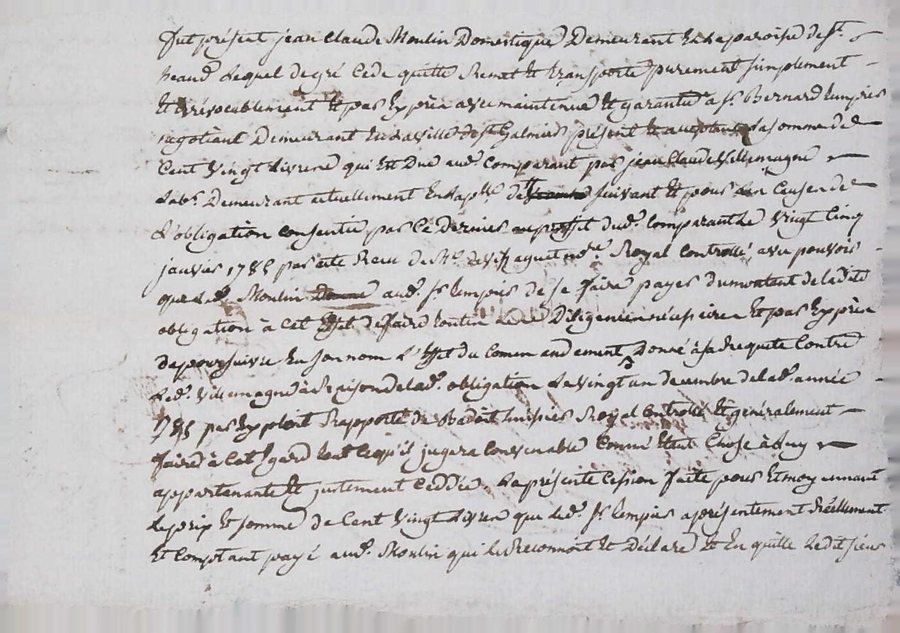 fut présent jean Claude Moulin Domestique Demeurant En la paroise de st.
heand Lequel de gré Cede quitte Remet Et transporte purement simplement
Et irrévocablement Et par Exprès avec maintenue Et garantie à sr. Bernard Lempies
négotiant Demeurant En la ville de st Galmier présent Et acceptant La somme de
Cent Vingt Livres qui Est Due aud. Comparant par jean Claude Villemagne
Lab. Demeurant actuellement En la p. de suivant Et pour Les Causes de
L'obligation Consentie par Ce dernier au proffit dud. Comparant Le Vingt Cinq
janvier 1785 par acte Recu de Me. no.re Royal Controllé, avec pouvoir
que Led. Moulin donne aud. sr. Lempies de se faire payer du montant de la dite
obligation à Cet Effet de faire toutes Diligences nécessaires Et par Exprès
De poursuivre En son nom L'Effet du Commandement Donné à sa Requete Contre
Led. Villemagne à Raison de lad. obligation Le vingt un decembre de lad. année
1785 par Exploit Rapporté de huissier Royal Controllé Et généralement
faire à Cet Egard tout Ce qu'il jugera Convenable Comme Etant Chose à Luy
appartenante Et justement Cédée. La présente Cession faite pour Et moyennant
Le prix Et somme de Cent Vingt Livres que Led. sr. Lempies a présentement Réellement
Et Comptant payé aud. Moulin qui Le Reconnoit Et Déclare Et En quitte Ledit sieur